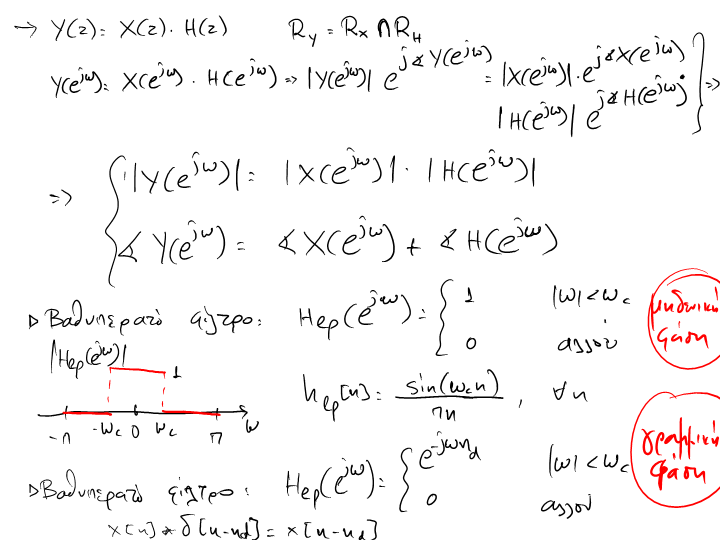 → Y(z) = X(z) · H(z)    R_Y = R_X ∩ R_H
Y(e^{jω}) = X(e^{jω}) · H(e^{jω}) => |Y(e^{jω})| e^{j∡Y(e^{jω})} = |X(e^{jω})| · e^{j∡X(e^{jω})} ·
|H(e^{jω})| e^{j∡H(e^{jω})} } =>
=> { |Y(e^{jω})| = |X(e^{jω})| · |H(e^{jω})|
∡Y(e^{jω}) = ∡X(e^{jω}) + ∡H(e^{jω})
▷ Βαθυπερατό φίλτρο: H_{ep}(e^{jω}) = { 1    |ω| < ω_c
0    αλλού
μηδενική
φάση
|H_{ep}(e^{jω})|
1
-π  -ω_c  0  ω_c  π  ω
h_{ep}[n] = sin(ω_c n) / πn , ∀n
▷ Βαθυπερατό φίλτρο: H_{ep}(e^{jω}) = { e^{-jωn_d}    |ω| < ω_c
0    αλλού
γραμμική
φάση
x[n] * δ[n-n_d] = x[n-n_d]